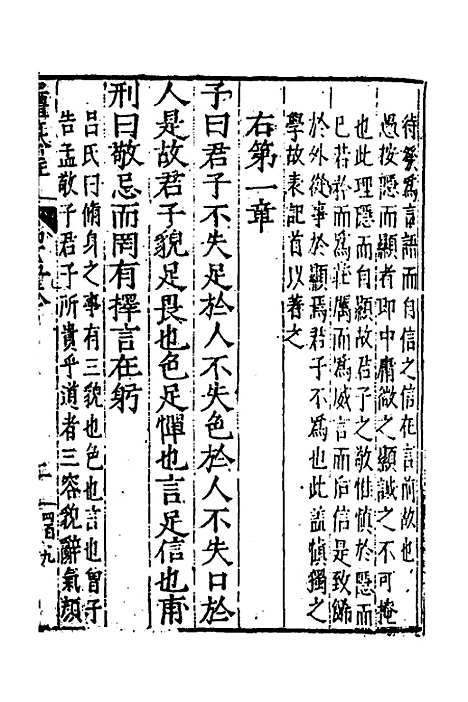 待發爲言語而自信之信在言前故也
愚按隱而顯者即中庸微之顯誠之不可掩
也此理隱而自顯故君子之敬惟慎於隱而
已若矜而爲莊厲而爲威言而后信是致飾
於外從事於顯焉君子不爲也此蓋慎獨之
學故表記首以著之
右第一章
子曰君子不失足於人不失色於人不失口於
人是故君子貌足畏也色足憚也言足信也甫
刑曰敬忌而罔有擇言在躬
呂氏曰脩身之事有三貌也色也言也曾子
告孟敬子君子所貴乎道者三容貌辭氣顏